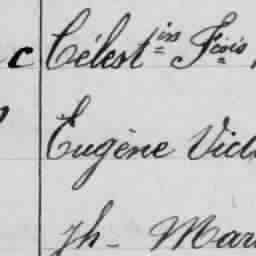 c Célestin Fçois
Eugène Vict
Jh - Mar